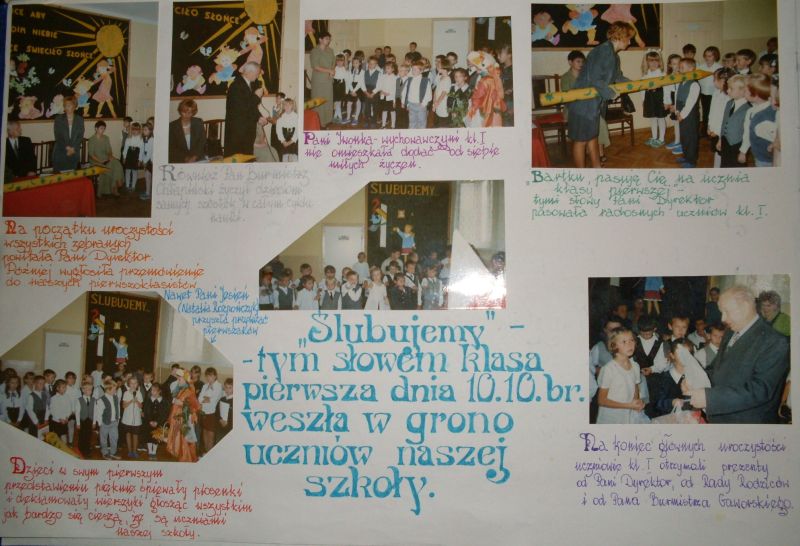 CE ABY
DIM NIEBIE
E ŚWIECIŁO SŁOŃCE
CIŁO SŁOŃCE
Na początku uroczystości
wszystkich zebranych
powitała Pani Dyrektor.
Później wygłosiła przemówienie
do naszych pierwszoklasistów
Również Pan Burmistrz
życzył dzieciom
samych szóstek w całym cyklu
nauki.
Pani Iwonka - wychowawczyni kl. I
nie omieszkała dodać od siebie
miłych życzeń.
"Bartku, pasuję Cię na ucznia
klasy pierwszej" -
tymi słowy Pani Dyrektor
pasowała radosnych uczniów kl. I.
ŚLUBUJEMY
Nawet Pani Jesień
(Natalia Rozpończyk)
przyszła przywitać
pierwszaków
ŚLUBUJEMY
"Ślubujemy" -
- tym słowem klasa
pierwsza dnia 10.10. br.
weszła w grono
uczniów naszej
szkoły.
Dzieci w swym pierwszym
przedstawieniu pięknie śpiewały piosenki
i deklamowały wierszyki głosząc wszystkim
jak bardzo się cieszą, że są uczniami
naszej szkoły.
Na koniec głównych uroczystości
uczniowie kl. I otrzymali prezenty
od Pani Dyrektor, od Rady Rodziców
i od Pana Burmistrza Gaworskiego.